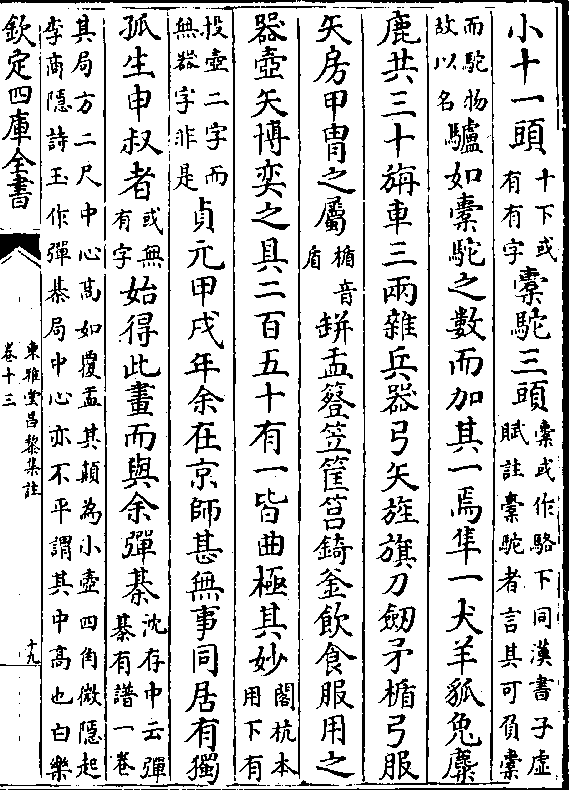 小十一頭十下或有有字橐駝三頭橐或作駱下同漢書子虛賦註橐駝者言其可負橐
而駝物故以名驢如橐駝之數而加其一焉隼一犬羊狐兔麋
鹿共三十旃車三兩雜兵器弓矢旌旗刀劒矛楯弓服
矢房甲冑之屬楯音盾缾盂簦笠筐筥錡釜飲食服用之
器壺矢博奕之具二百五十有一皆曲極其妙閣杭本用下有
投壺二字而無器字非是貞元甲戌年余在京師甚無事同居有獨
孤生申叔者或無有字始得此畫而與余彈棊沈存中云彈棊有譜一卷
其局方二尺中心髙如覆盂其顛為小壺四角微隱起
李商隱詩玉作彈棊局中心亦不平謂其中髙也白樂
欽定四庫全書
東雅堂昌黎集註
卷十三
十九